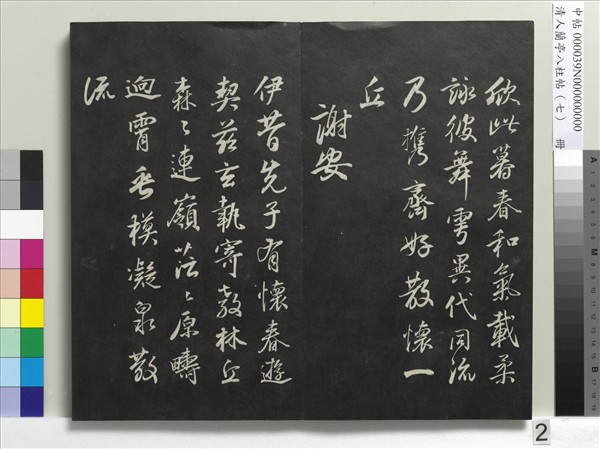 中帖 000039N000000000
清人蘭亭八柱帖（七） 冊
欣此暮春和氣載柔
詠彼舞雩異代同流
乃携齊好散懷一
丘
謝安
伊昔先子有懷春遊
契茲言執寄敖林丘
森〻連嶺茫〻原疇
逈霄垂模凝泉散
流
2
A
M
B